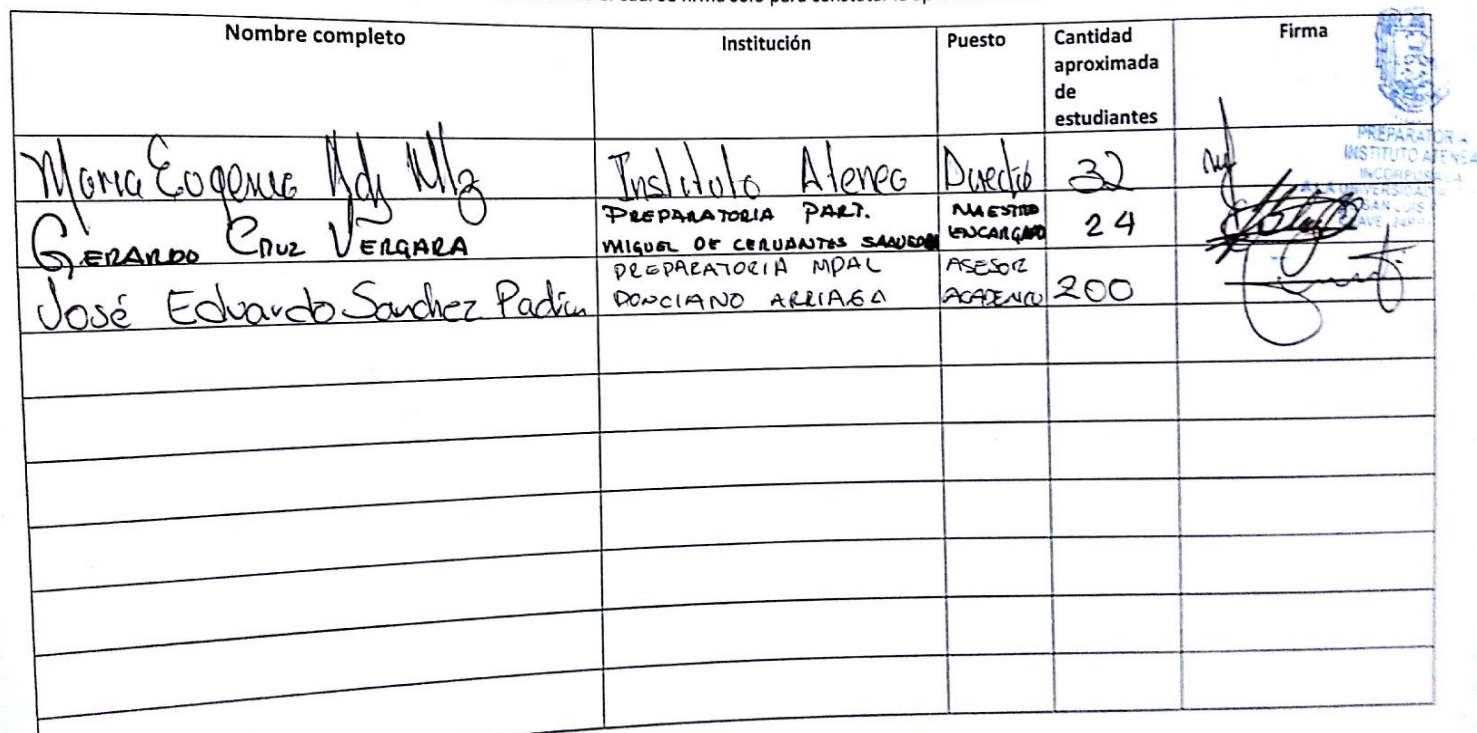 firma solo para constatar la
Nombre completo
Institución
Puesto
Cantidad
aproximada
de
estudiantes
Firma
Maria Eugenia Mtz
Instituto Atenea
32
GERARDO CRUZ VERGARA
PREPARATORIA PART.
MIGUEL DE CERVANTES SAAVEDRA
MAESTRO
ENCARGADO
24
José Eduardo Sanchez Padin
PREPARATORIA MPAL
PONCIANO ARRIAGA
ASESOR
ACADEMICO
200
PREPARATOR
INSTITUTO ATENEA
SAN LUIS